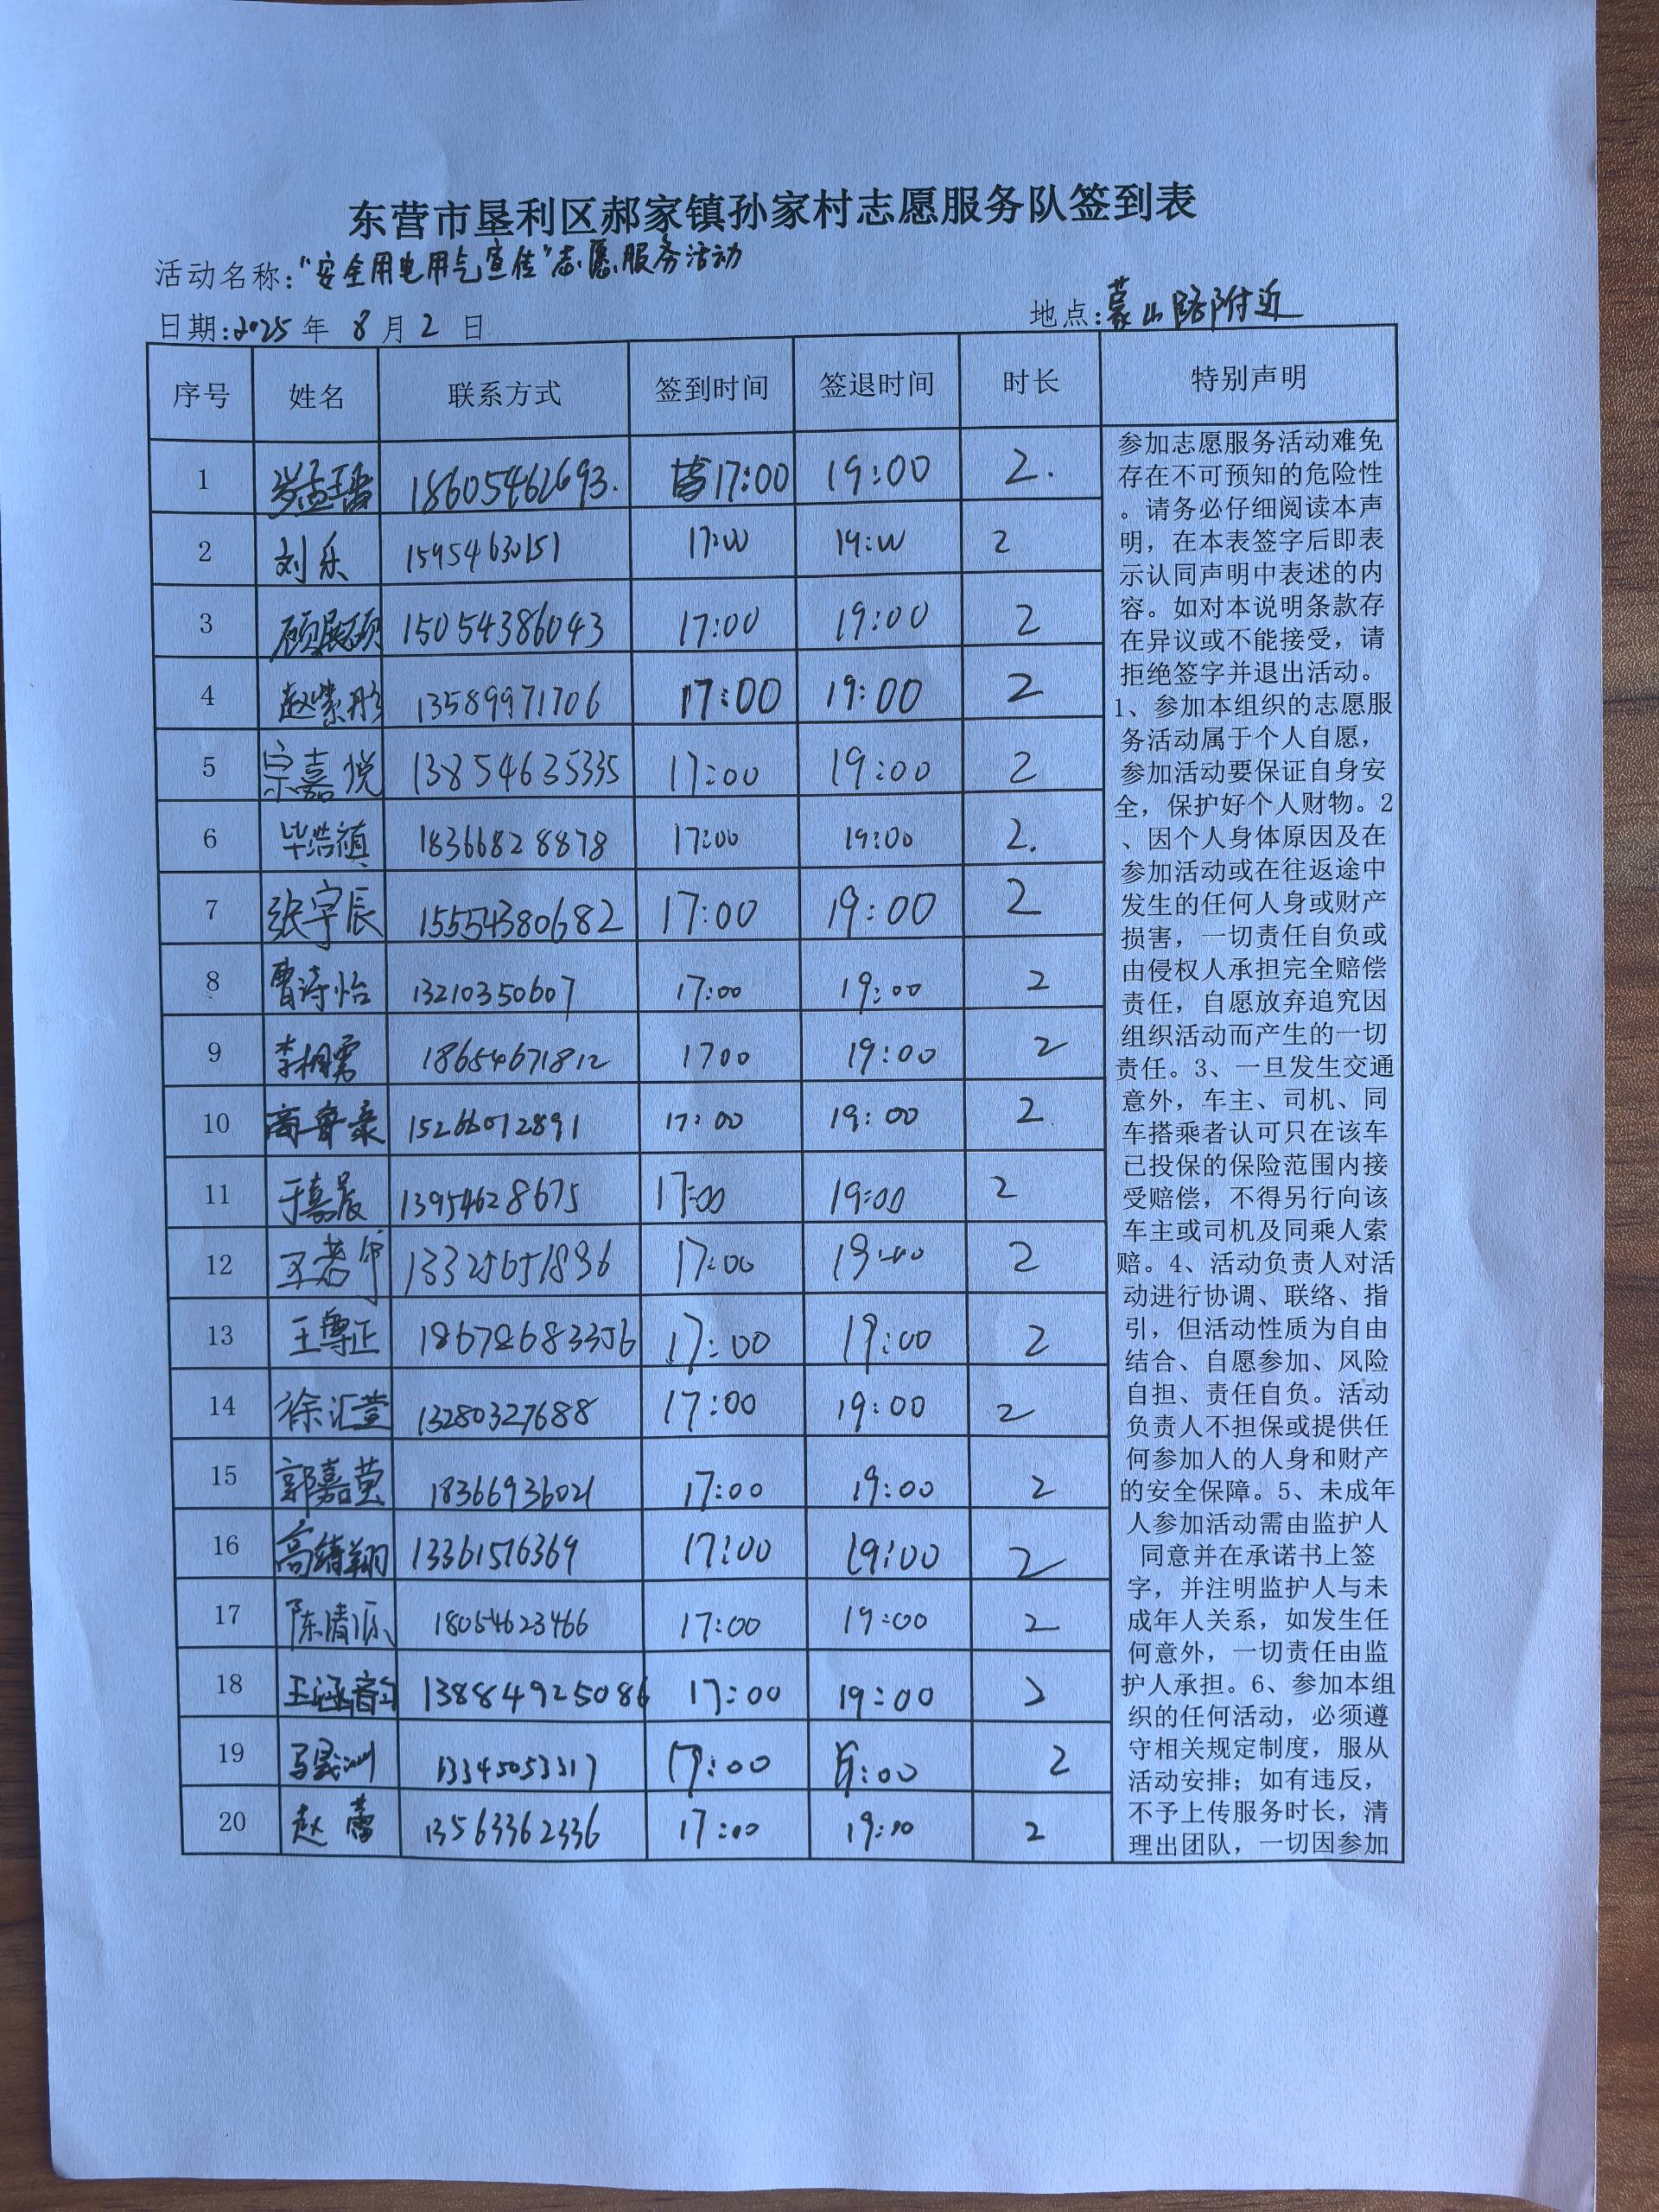 东营市垦利区郝家镇孙家村志愿服务队签到表
活动名称:"安全用电用气宣传"志愿服务活动
日期:2025 年 8 月 2 日 地点:蒙山路附近
序号 姓名 联系方式 签到时间 签退时间 时长 特别声明
1 18605462693. 17:00 19:00 2.
2 刘乐 15954630151 17:00 19:00 2
3 顾展硕 15054386043 17:00 19:00 2
4 赵紫彤 13589971706 17:00 19:00 2
5 宗嘉悦 13854635335 17:00 19:00 2
6 毕浩禛 18366828878 17:00 19:00 2.
7 张宇辰 15554380682 17:00 19:00 2
8 曹诗怡 13210350607 17:00 19:00 2
9 18654671812 1700 19:00 2
10 15266012891 17:00 19:00 2
11 于嘉晨 13954628675 17:00 19:00 2
12 13325651896 17:00 19:00 2
13 王尊正 18678683356 17:00 19:00 2
14 徐汇萱 13280327688 17:00 19:00 2
15 郭嘉萤 18366936021 17:00 19:00 2
16 高靖翔 13361516369 17:00 19:00 2
17 陈清源 18054623466 17:00 19:00 2
18 王涵韵 13884925086 17:00 19:00 2
19 马晟洲 13345053317 17:00 19:00 2
20 赵蕾 13563362336 17:00 19:00 2
参加志愿服务活动难免
存在不可预知的危险性
。请务必仔细阅读本声
明，在本表签字后即表
示认同声明中表述的内
容。如对本说明条款存
在异议或不能接受，请
拒绝签字并退出活动。
1、参加本组织的志愿服
务活动属于个人自愿，
参加活动要保证自身安
全，保护好个人财物。2
、因个人身体原因及在
参加活动或在往返途中
发生的任何人身或财产
损害，一切责任自负或
由侵权人承担完全赔偿
责任，自愿放弃追究因
组织活动而产生的一切
责任。3、一旦发生交通
意外，车主、司机、同
车搭乘者认可只在该车
已投保的保险范围内接
受赔偿，不得另行向该
车主或司机及同乘人索
赔。4、活动负责人对活
动进行协调、联络、指
引，但活动性质为自由
结合、自愿参加、风险
自担、责任自负。活动
负责人不担保或提供任
何参加人的人身和财产
的安全保障。5、未成年
人参加活动需由监护人
同意并在承诺书上签
字，并注明监护人与未
成年人关系，如发生任
何意外，一切责任由监
护人承担。6、参加本组
织的任何活动，必须遵
守相关规定制度，服从
活动安排；如有违反，
不予上传服务时长，清
理出团队，一切因参加